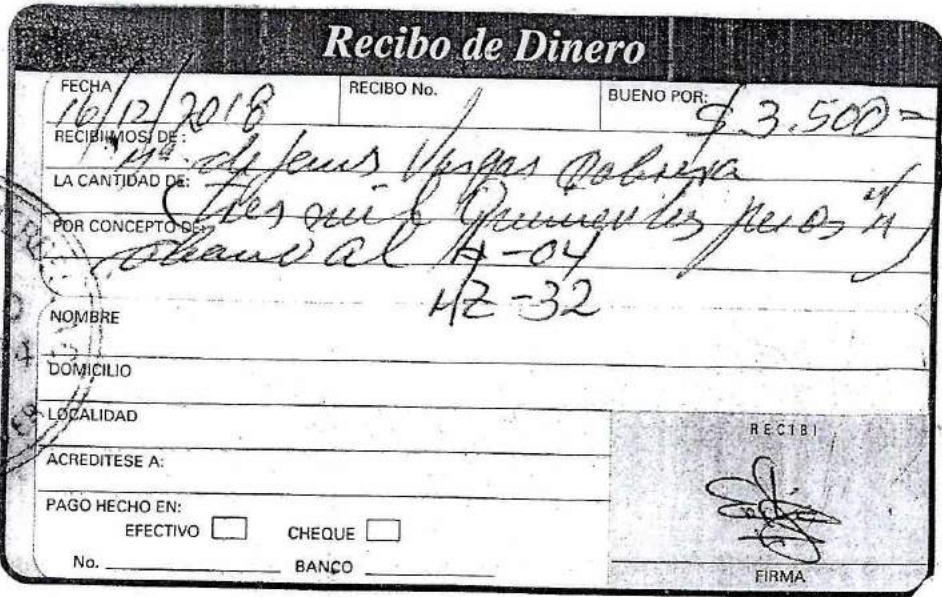 Recibo de Dinero
FECHA 16/12/2018 RECIBO No. BUENO POR: $ 3.500=
RECIBI(MOS) DE: Mª. de Jesus Vargas
LA CANTIDAD DE: (tres mil Quinientos pesos
POR CONCEPTO DE: abono al A-04
MZ-32
NOMBRE
DOMICILIO
LOCALIDAD
ACREDITESE A:
PAGO HECHO EN:
EFECTIVO CHEQUE
No. BANCO
RECIBI
FIRMA